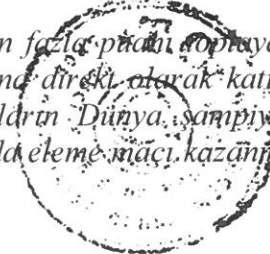 n fazla puanı toplaya
na direkt olarak katı
ların Dünya şampiy
da eleme maçı kazanm